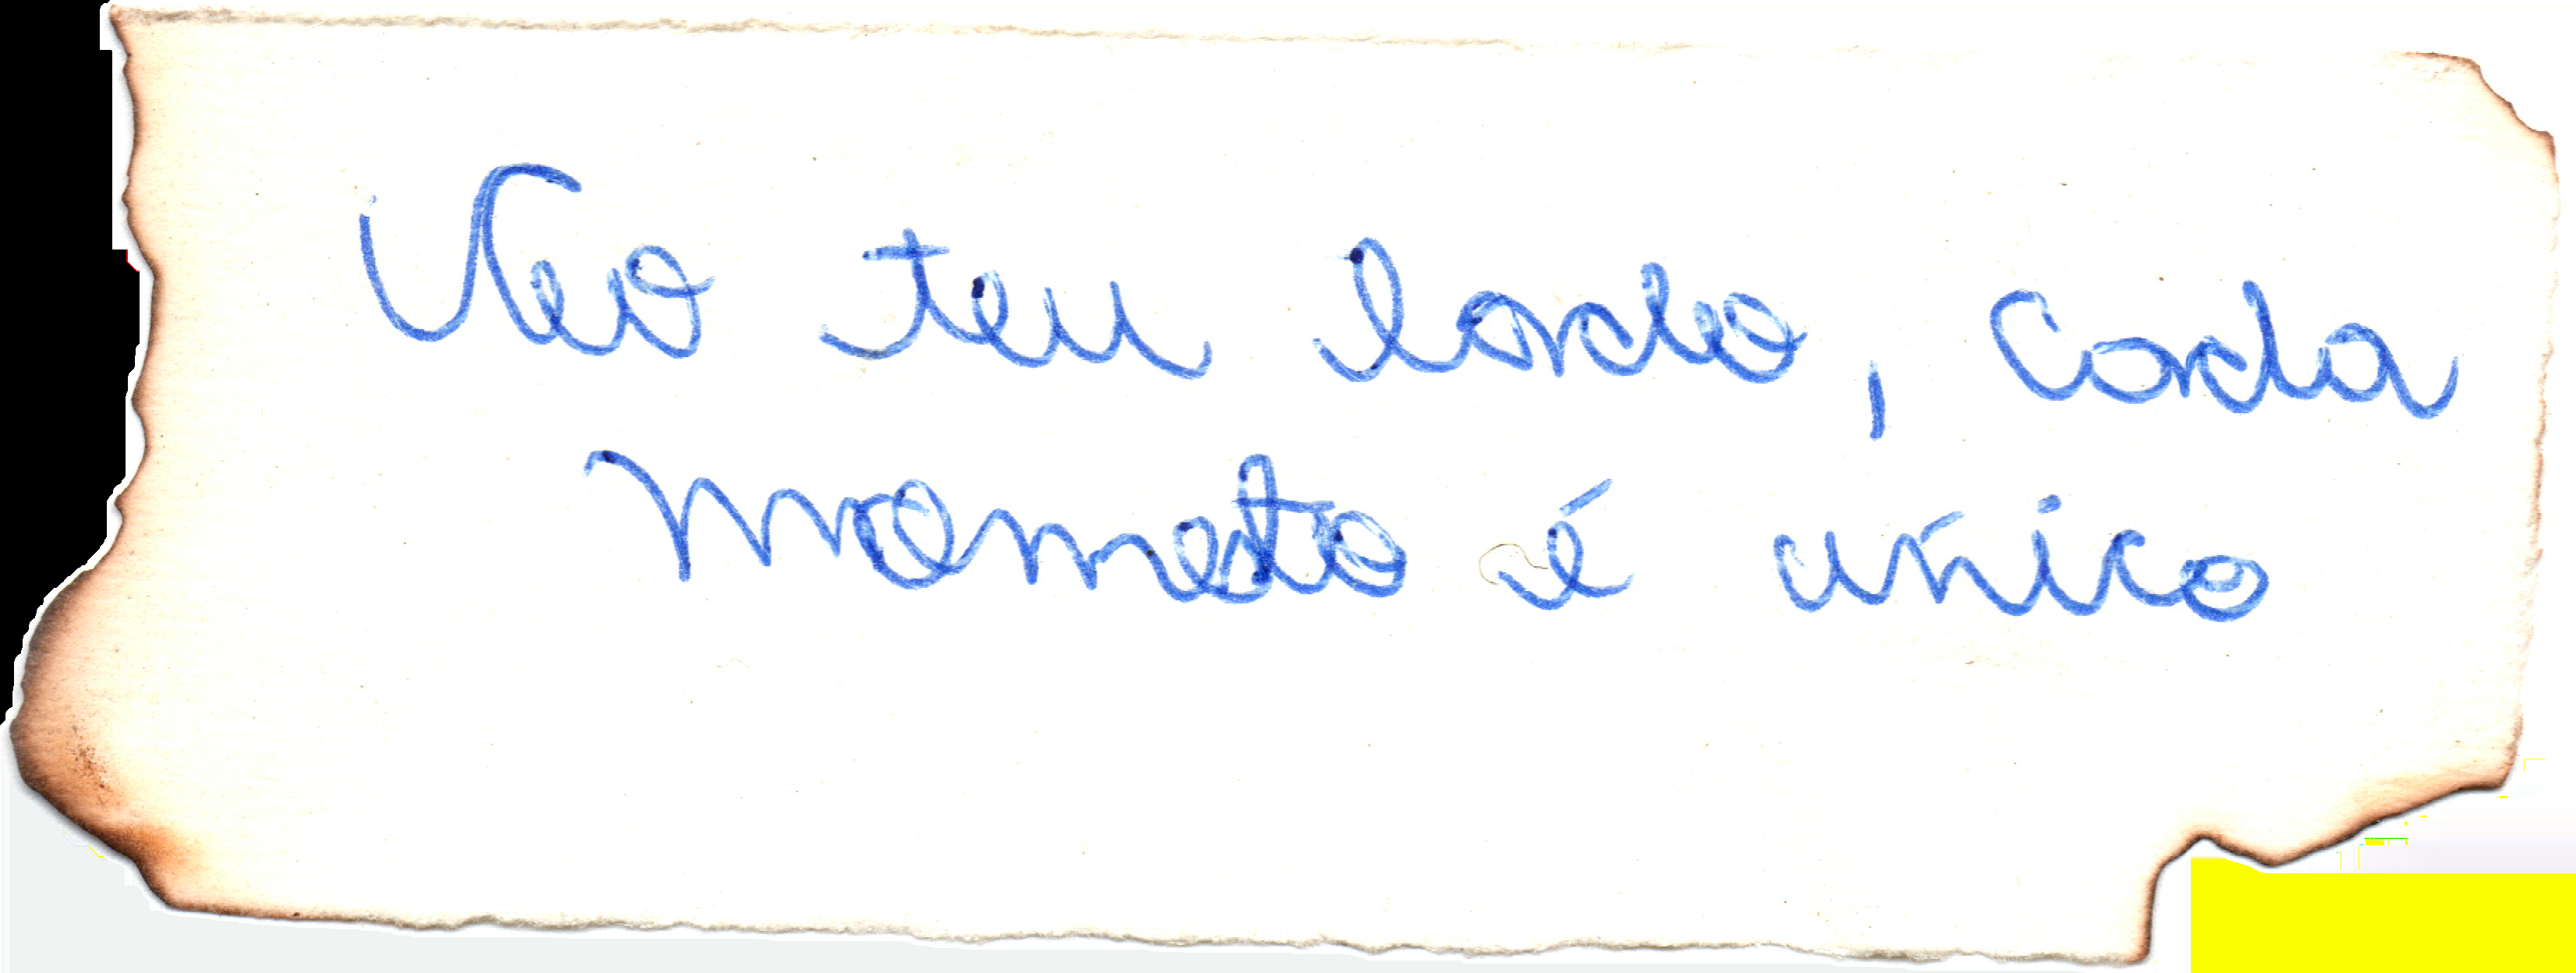 teu lado, cada
mometo é único